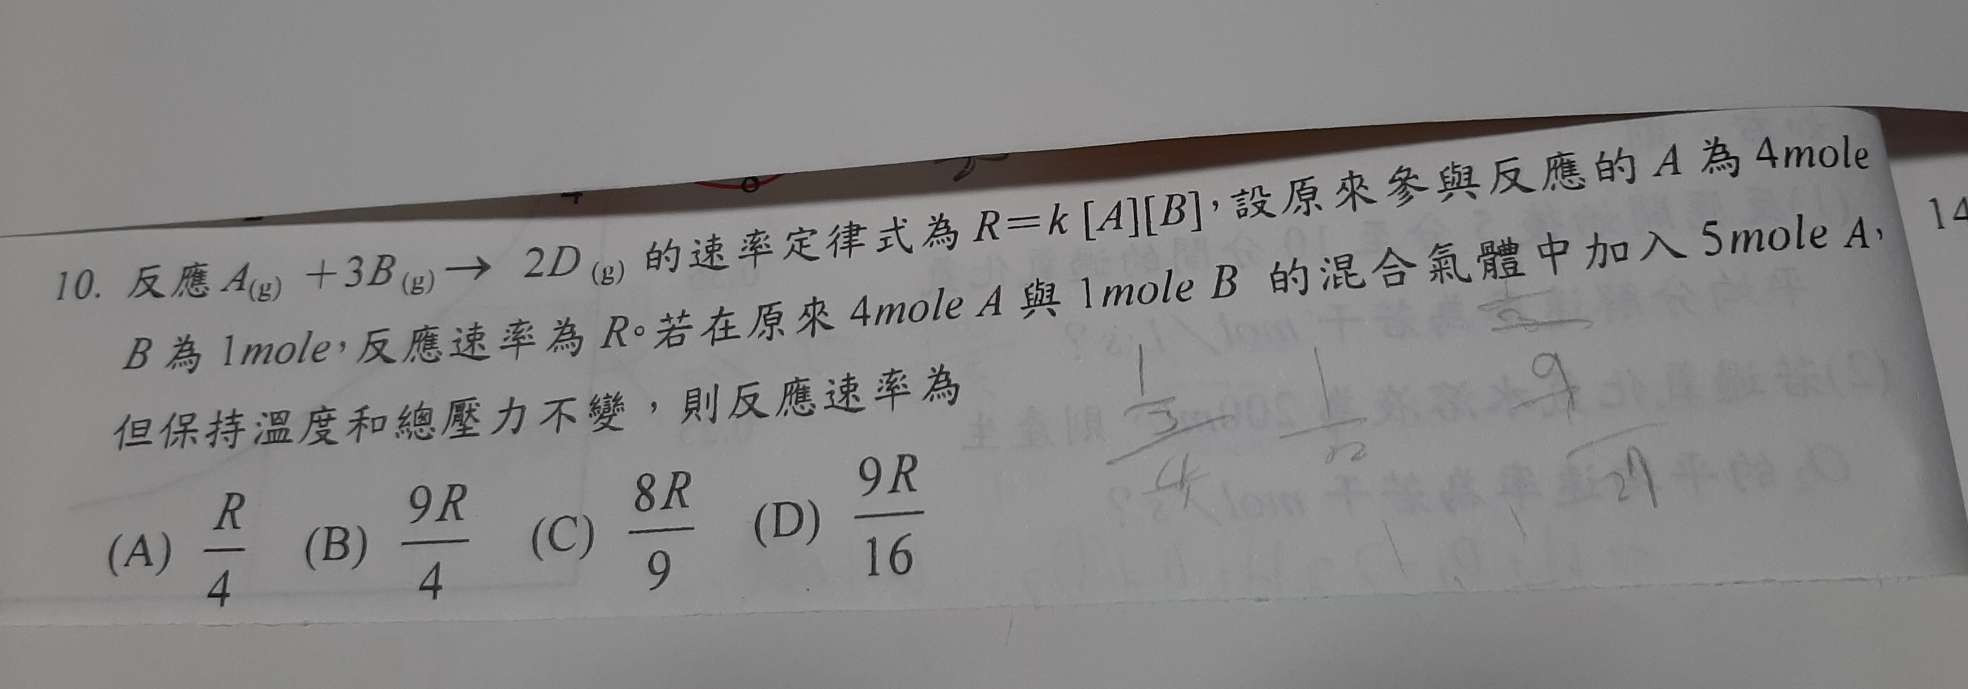 10. 反應 A(g) +3B(g)→ 2D(g) 的速率定律式為 R=k [A][B]，設原來參與反應的 A 為 4mole
B 為 1mole，反應速率為 R。若在原來 4mole A 與 1mole B 的混合氣體中加入 5mole A，
但保持溫度和總壓力不變，則反應速率為
(A) R/4 (B) 9R/4 (C) 8R/9 (D) 9R/16
14
1/3
4
1/2
9
27